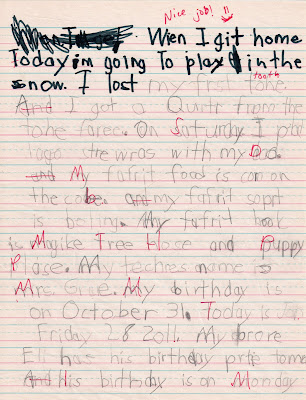 Nice job!
Wen I git home
Today im going To play in the
snow. I lost my frst tohe.
tooth
And I got a Qurtr from the
tohe faree. On Saturday I plad
lago stre wras with my Dad.
and My fafrit food is corn on
the cobe. and my fafrit soprt
is boling. My fafrit book
is Magike Tree Hose and Puppy
Plase. My teches name is
Mrs. My birthday is
on October 31. Today is
Friday 28 2011. My brore
Eli has his birthday
And His birthday is on Monday